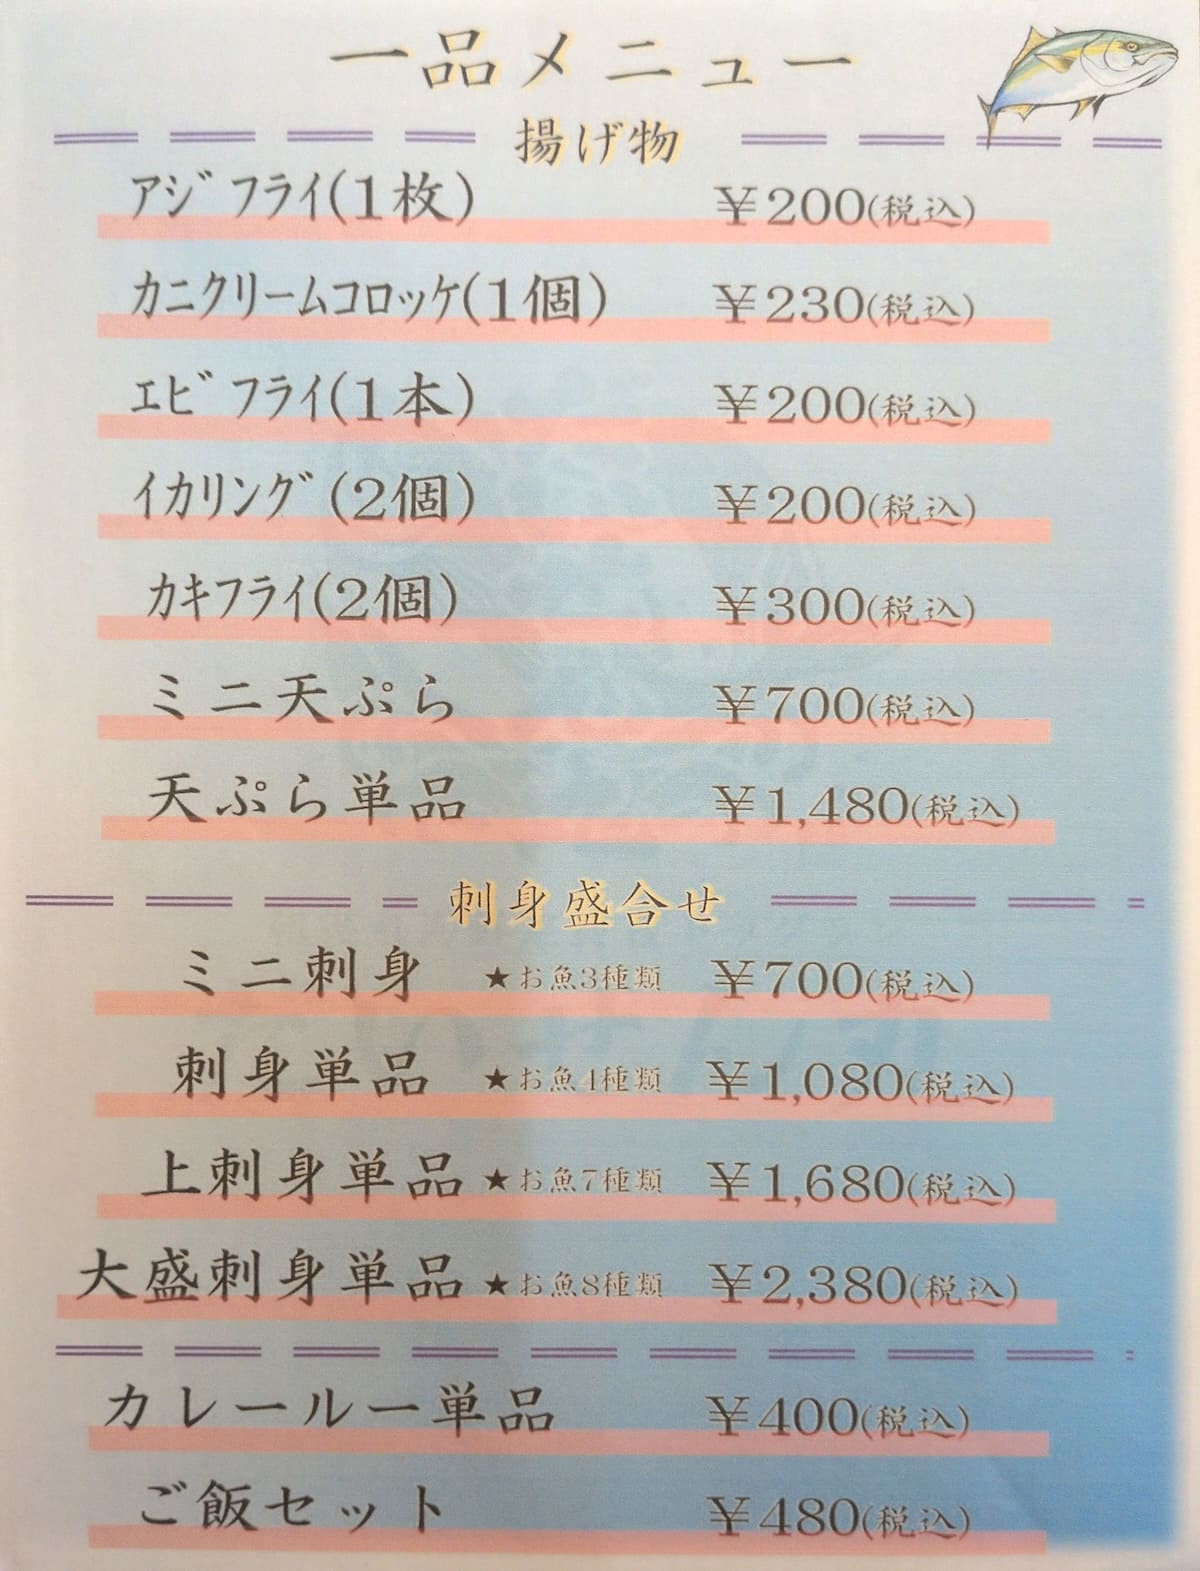 一品メニュー
揚げ物
アジフライ(1枚) ￥200(税込)
カニクリームコロッケ(1個) ￥230(税込)
エビフライ(1本) ￥200(税込)
イカリング(2個) ￥200(税込)
カキフライ(2個) ￥300(税込)
ミニ天ぷら ￥700(税込)
天ぷら単品 ￥1,480(税込)
刺身盛合せ
ミニ刺身 ★お魚3種類 ￥700(税込)
刺身単品 ★お魚4種類 ￥1,080(税込)
上刺身単品 ★お魚7種類 ￥1,680(税込)
大盛刺身単品 ★お魚8種類 ￥2,380(税込)
カレールー単品 ￥400(税込)
ご飯セット ￥480(税込)